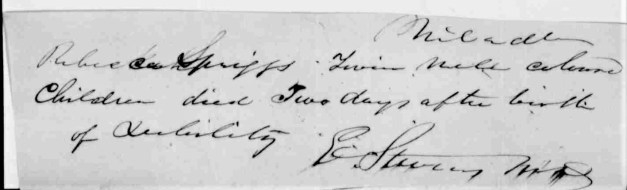 Philada
Rebecca Spriggs Twin Male coloured
Children died Two days after birth
of Debility
E. Stevens MD